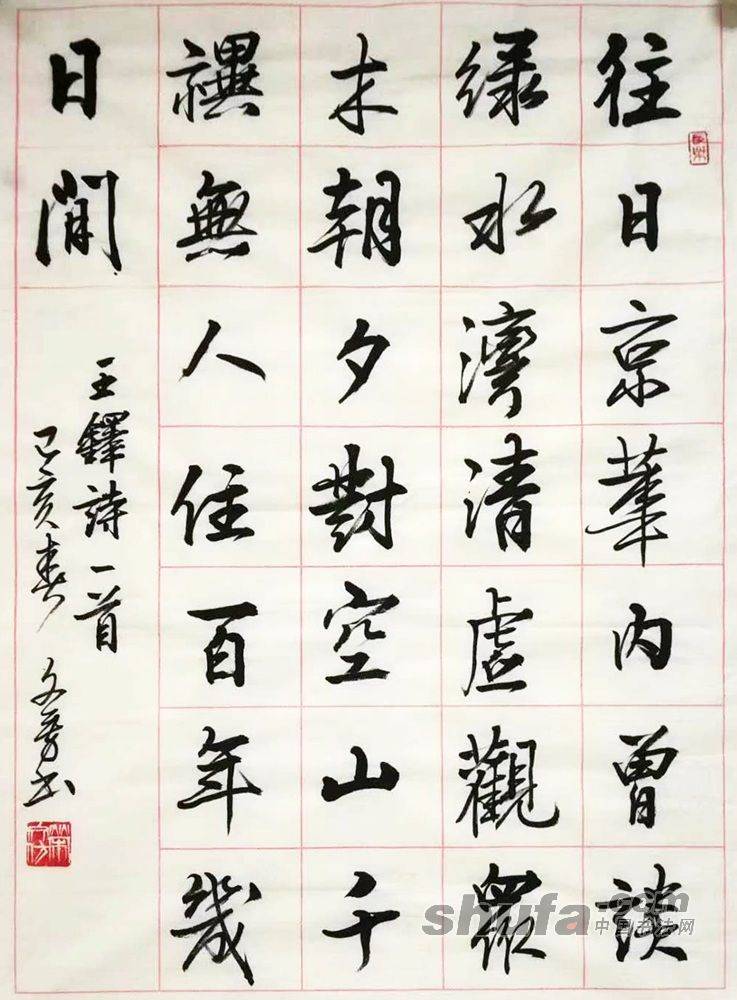 往日京華内曾談
緑水灣清虛觀衆
木朝夕對空山千
禩無人住百年幾
日閒
王鐸詩一首
己亥春 文芳书
shufa.com
中国书法网